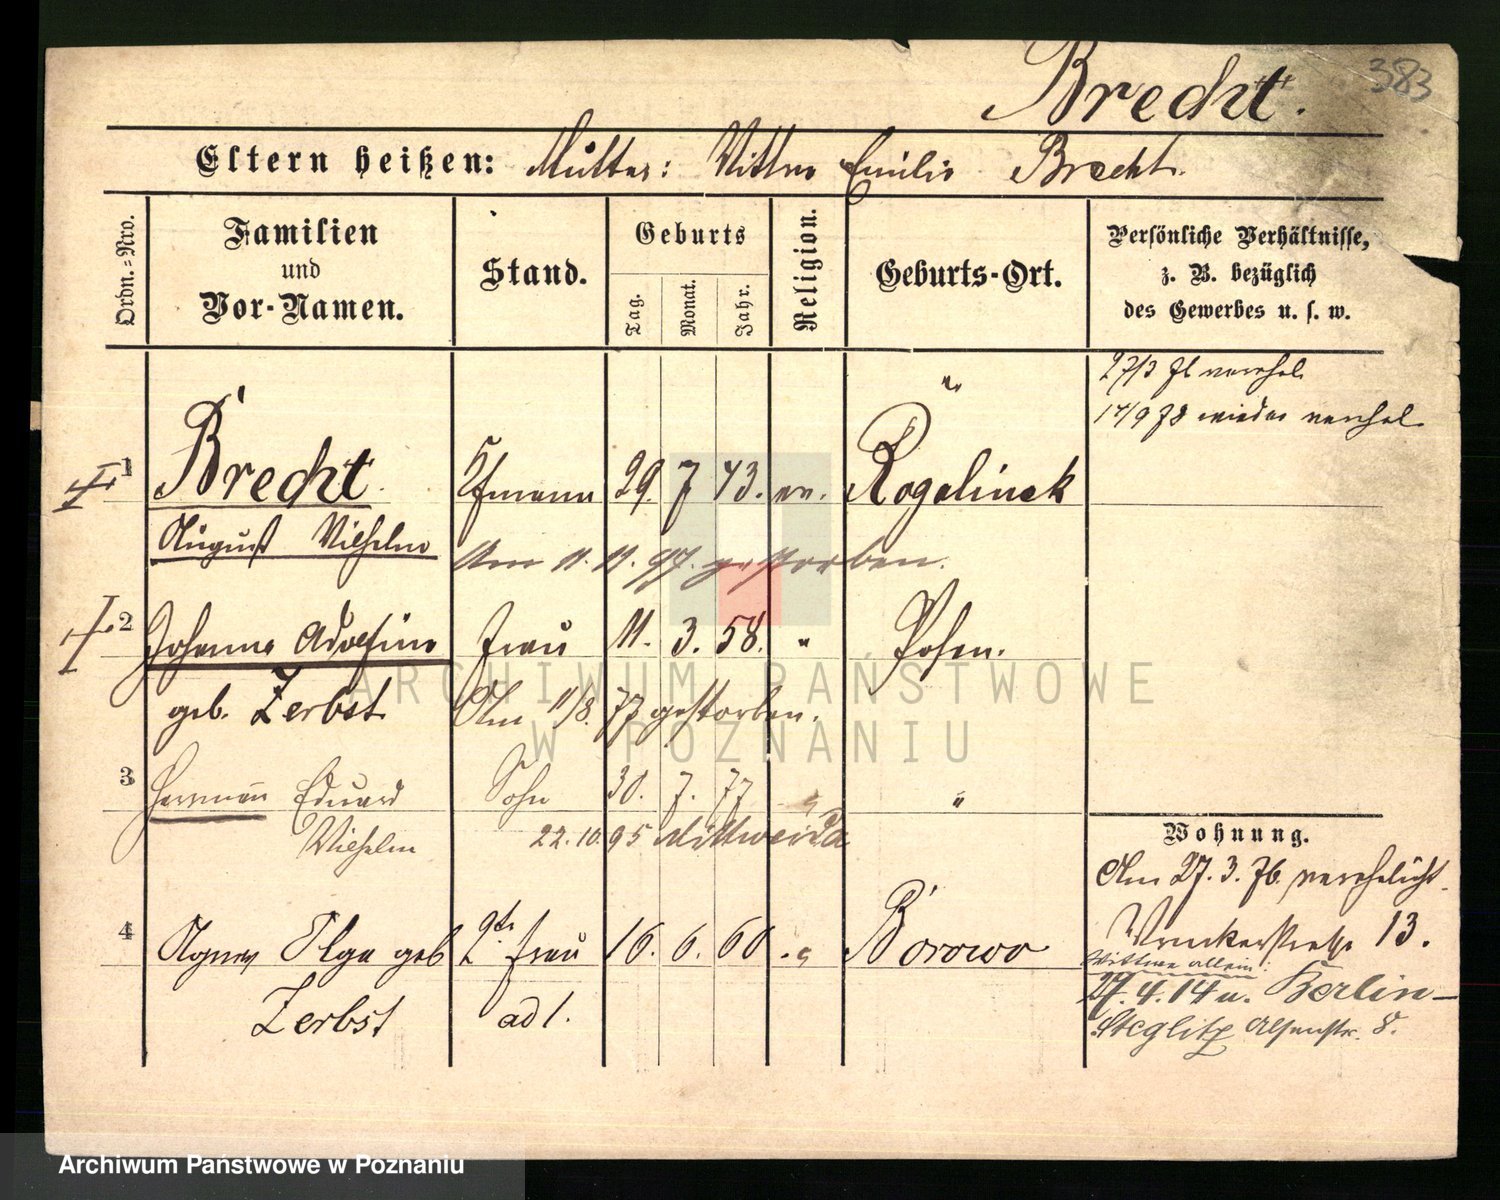 383
Brecht.
Eltern heißen: Mutter: Wittwe Emilie Brecht.
Ordn.-Nro.
Familien
und
Vor-Namen.
Stand.
Geburts
Tag.
Monat.
Jahr.
Religion.
Geburts-Ort.
Persönliche Verhältnisse,
z. B. bezüglich
des Gewerbes u. s. w.
27/3 76 verehel.
17/9 78 wieder verehel.
1 Brecht Kfmann 29. 7 43. ev. Rogalinek
August Wilhelm
Am 11. 11. 97. gestorben.
2 Johanne Adolfine Frau 11. 3. 58. " Posen.
geb. Zerbst Am 11/8. 77 gestorben.
3 Herrmann Eduard Sohn 30. 7. 77 "
Wilhelm 22. 10. 95 Mittweida
4 Agnes Olga geb 2te Frau 16. 6. 60 Borowo
Zerbst ad 1.
Wohnung.
Am 27. 3. 76. verehelicht.
13.
Wittwe allein:
27. 4. 14 u. Berlin-
Steglitz Alsenstr. 8.
ARCHIWUM PAŃSTWOWE
W POZNANIU
Archiwum Państwowe w Poznaniu